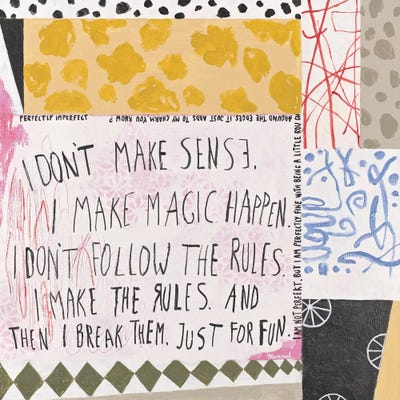 PERFECTLY IMPERFECT
I DON'T MAKE SENSE.
I MAKE MAGIC HAPPEN.
I DON'T FOLLOW THE RULES.
I MAKE THE RULES. AND
THEN I BREAK THEM. JUST FOR FUN.
I AM NOT PERFEKT. BUT I AM PERFECTLY FINE WITH BEING A LITTLE ROUGH
AROUND THE EDGES. IT JUST ADDS TO MY CHARM. YOU KNOW ?
love